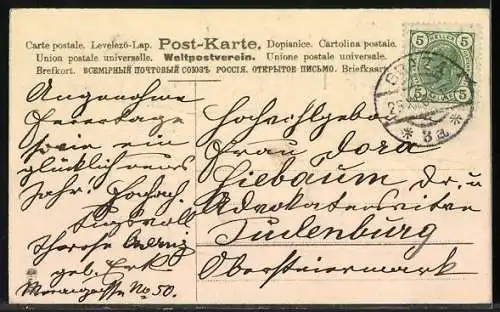 Carte postale. Levelező-Lap. Post-Karte. Dopisnice. Cartolina postale.
Union postale universelle. Weltpostverein. Unione postale universale.
Brefkort. ВСЕМІРНЫЙ ПОЧТОВЫЙ СОЮЗЪ. РОССІЯ. ОТКРЫТОЕ ПИСЬМО. Briefkaart.
5 HELLER 5
5 5
GRAZ
* 3a *
Angenehme
Feiertage
sowie ein
glückliches neues
Jahr! Hochach-
tungsvoll
Therese
geb. Erk
No 50.
Hochwohlgeboren
Frau Dora
Liebaum, Dr. u.
Advokatenswitwe
Judenburg
Obersteiermark